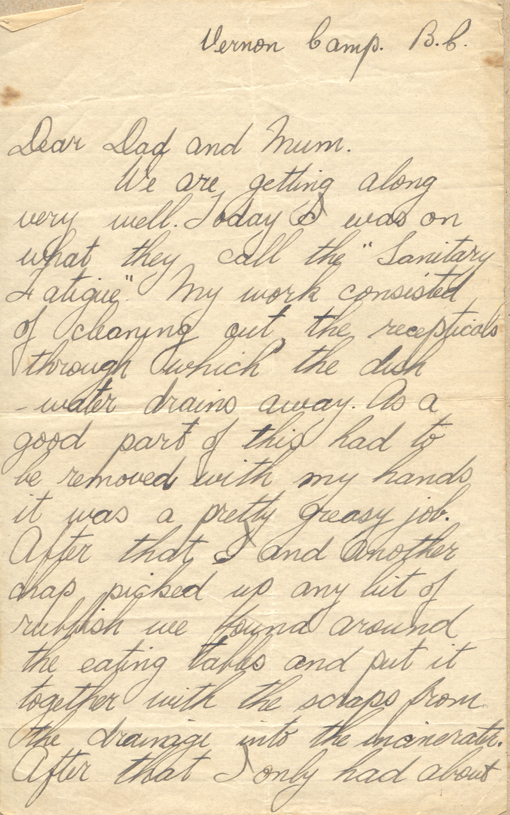 Vernon Camp. B.C.
Dear Dad and Mum.
We are getting along
very well. Today I was on
what they call the "Sanitary
Fatigue". My work consisted
of cleaning out the recepticals
through which the dish
-water drains away. As a
good part of this had to
be removed with my hands
it was a pretty greasy job.
After that I and another
chap picked up any bit of
rubbish we found around
the eating tables and put it
together with the scraps from
the drainage into the incinerator.
After that I only had about